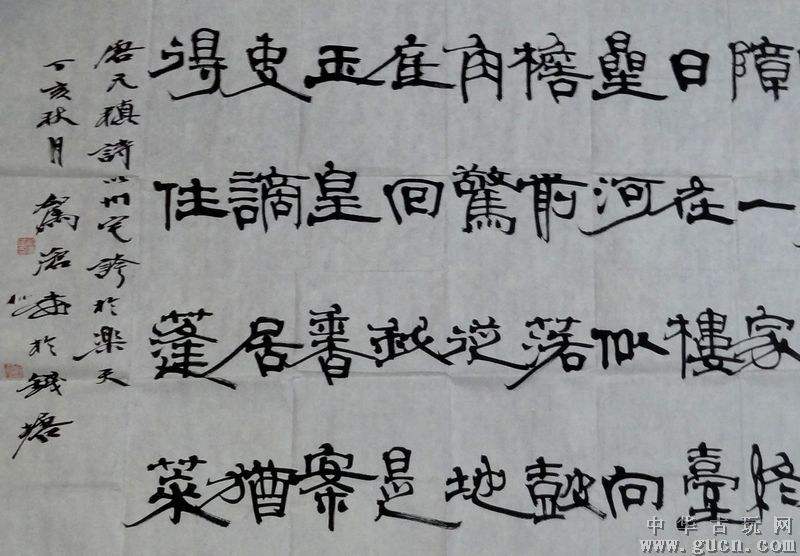 障一家終
日在樓臺
曐河似向
檐前落鼓
角驚從地
底回我是
玉皇香案
吏謫居猶
得住蓬萊
唐元稹詩以州宅誇於樂天
丁亥秋月 滄 於錢塘
中华古玩网
www.gucn.com